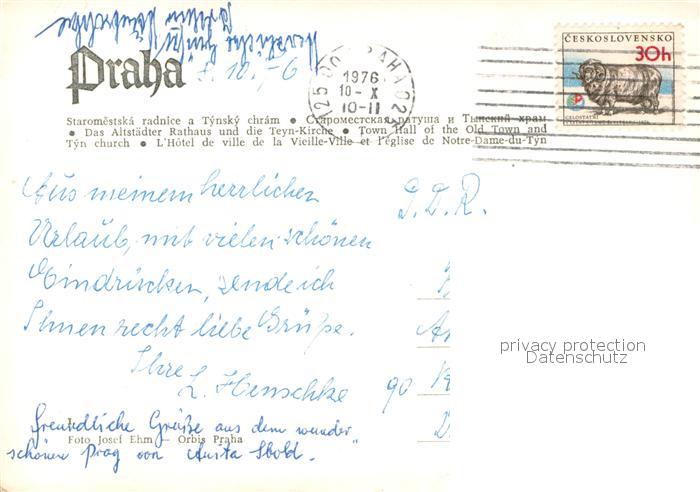 Herzliche Grüße
Praha
8. 10. 76
ČESKOSLOVENSKO
30h
CELOSTÁTNÍ
PRAHA 025
1976
10-X
10-11
Staroměstská radnice a Týnský chrám • Староместская ратуша и Тынский храм
• Das Altstädter Rathaus und die Teyn-Kirche • Town Hall of the Old Town and
Týn church • L'Hôtel de ville de la Vieille-Ville et l'église de Notre-Dame-du-Týn
Aus meinem herrlichen
Urlaub, mit vielen schönen
Eindrücken, sende ich
Ihnen recht liebe Grüße.
Ihre
L. Henschke
freundliche Grüße aus dem wunder-
Foto Josef Ehm – Orbis Praha
schönen Prag von Anita
G. D. R.
90
privacy protection
Datenschutz